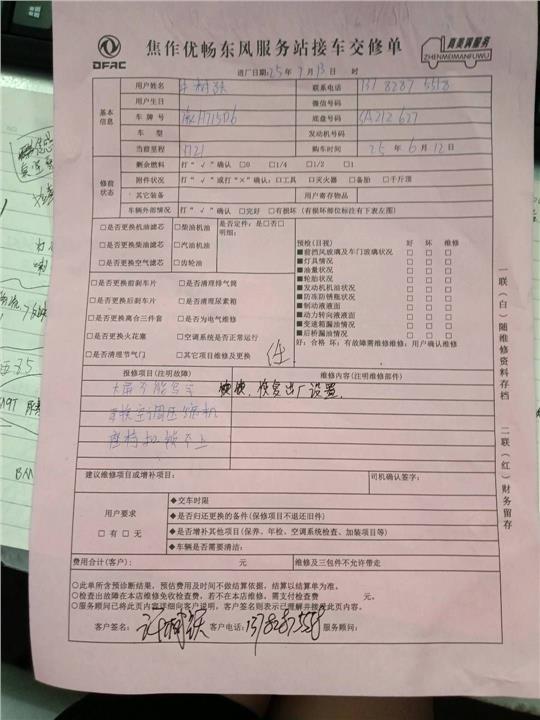 DFAC
焦作优畅东风服务站接车交修单
真美满服务
ZHENMEIMANFUWU
进厂日期:25年7月13日 时
基本信息
用户姓名 联系电话 137 8287 5518
用户生日 微信号码
车牌号 底盘号码 SA212627
车型 发动机号码
当前里程 1721 购车时间 25年6月12日
修前状态
剩余燃料 打“√”确认 □0 □1/4 □1/2 □1
附件状况 打“√”或打“×”确认:□工具 □灭火器 □备胎 □千斤顶
其它装备 用户寄存物品
车辆外部情况 打“√”确认 □完好 □有损坏(有损坏部位标注有下表左图)
□是否更换机油滤芯 □柴油机油 是否定件:是□否□
□是否更换柴油滤芯 □汽油机油 明细:
□是否更换空气滤芯 □齿轮油
□是否更换前刹车片 □是否清理排气筒
□是否更换后刹车片 □是否清理尿素箱
□是否更换离合三件套 □是否为电气维修
□是否更换火花塞 □空调系统是否正常运行
□是否清理节气门 □其它项目维修及更换
预检(目视) 好 坏 维修
■前挡风玻璃及车门玻璃状况 □ □ □
■灯具情况 □ □ □
■油量状况 □ □ □
■轮胎状况 □ □ □
■发动机机油状况 □ □ □
■防冻防锈瓶状况 □ □ □
■制动液液面 □ □ □
■动力转向液液面 □ □ □
■变速箱漏油情况 □ □ □
■后桥漏油情况 □ □ □
好:合格 坏:有故障需维修维修:用户确认维修
报修项目(注明故障) 维修内容(注明维修部件)
恢复出厂设置.
建议维修项目或增补项目: 司机确认签字:
用户要求
□有 □无
◆交车时限
◆是否归还更换的备件(保修项目不退还旧件)
◆是否增补其他项目(保养、年检、空调系统检查、加装项目等)
◆车辆是否需要清洁:
费用合计(客户): 元 维修及三包件不允许带走
○此单所含预诊断结果,预估费用及时间不做结算依据,结算以结算单为准。
○检查出故障在本店维修免收检查费,若不在本店维修,需支付检查费 元。
○服务顾问已将此页内容详细向客户说明,客户签名则表示已理解并接受此页内容。
客户签名: 客户电话:13782875518 服务顾问:
一联(白)随维修资料存档
二联(红)财务留存